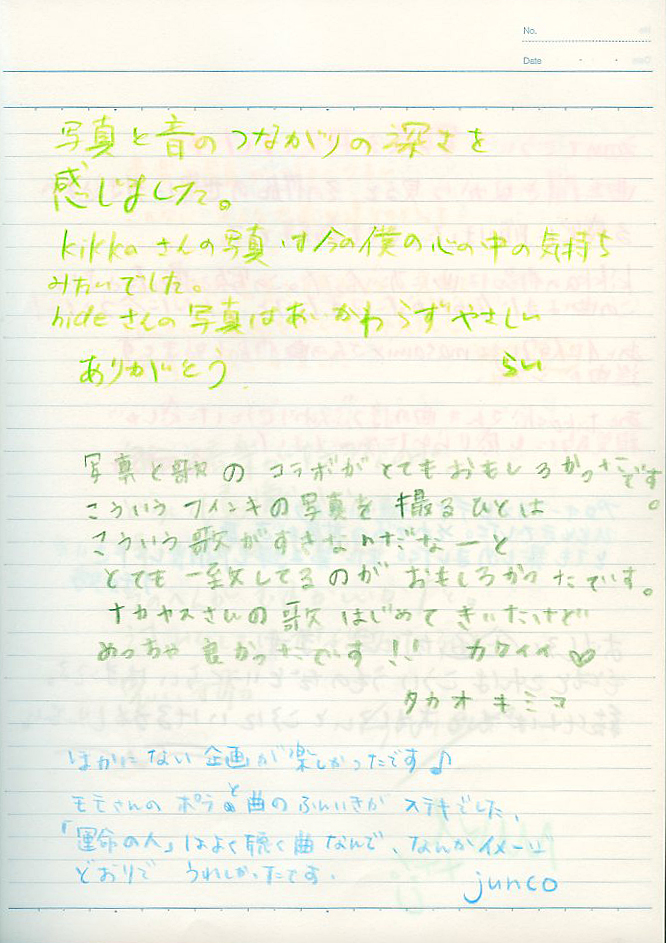 No.
Date
写真と音のつながりの深さを
感じました。
kikkaさんの写真は今の僕の心の中の気持ち
みたいでした。
hideさんの写真はあいかわらずやさしい
ありがとう らい
写真と歌のコラボがとてもおもしろかったです。
こういうフインキの写真を撮るひとは
こういう歌がすきなんだなーと
とても一致してるのがおもしろかったです。
ナカヤスさんの歌はじめてきいたけど
めっちゃ良かったです!! カワイイ♡
タカオキミコ
ほかにない企画が楽しかったです♪
モモさんのポラと曲のふんいきがステキでした、
「運命の人」はよく聴く曲なんで、なんかイメージ
どおりで うれしかったです.
junco